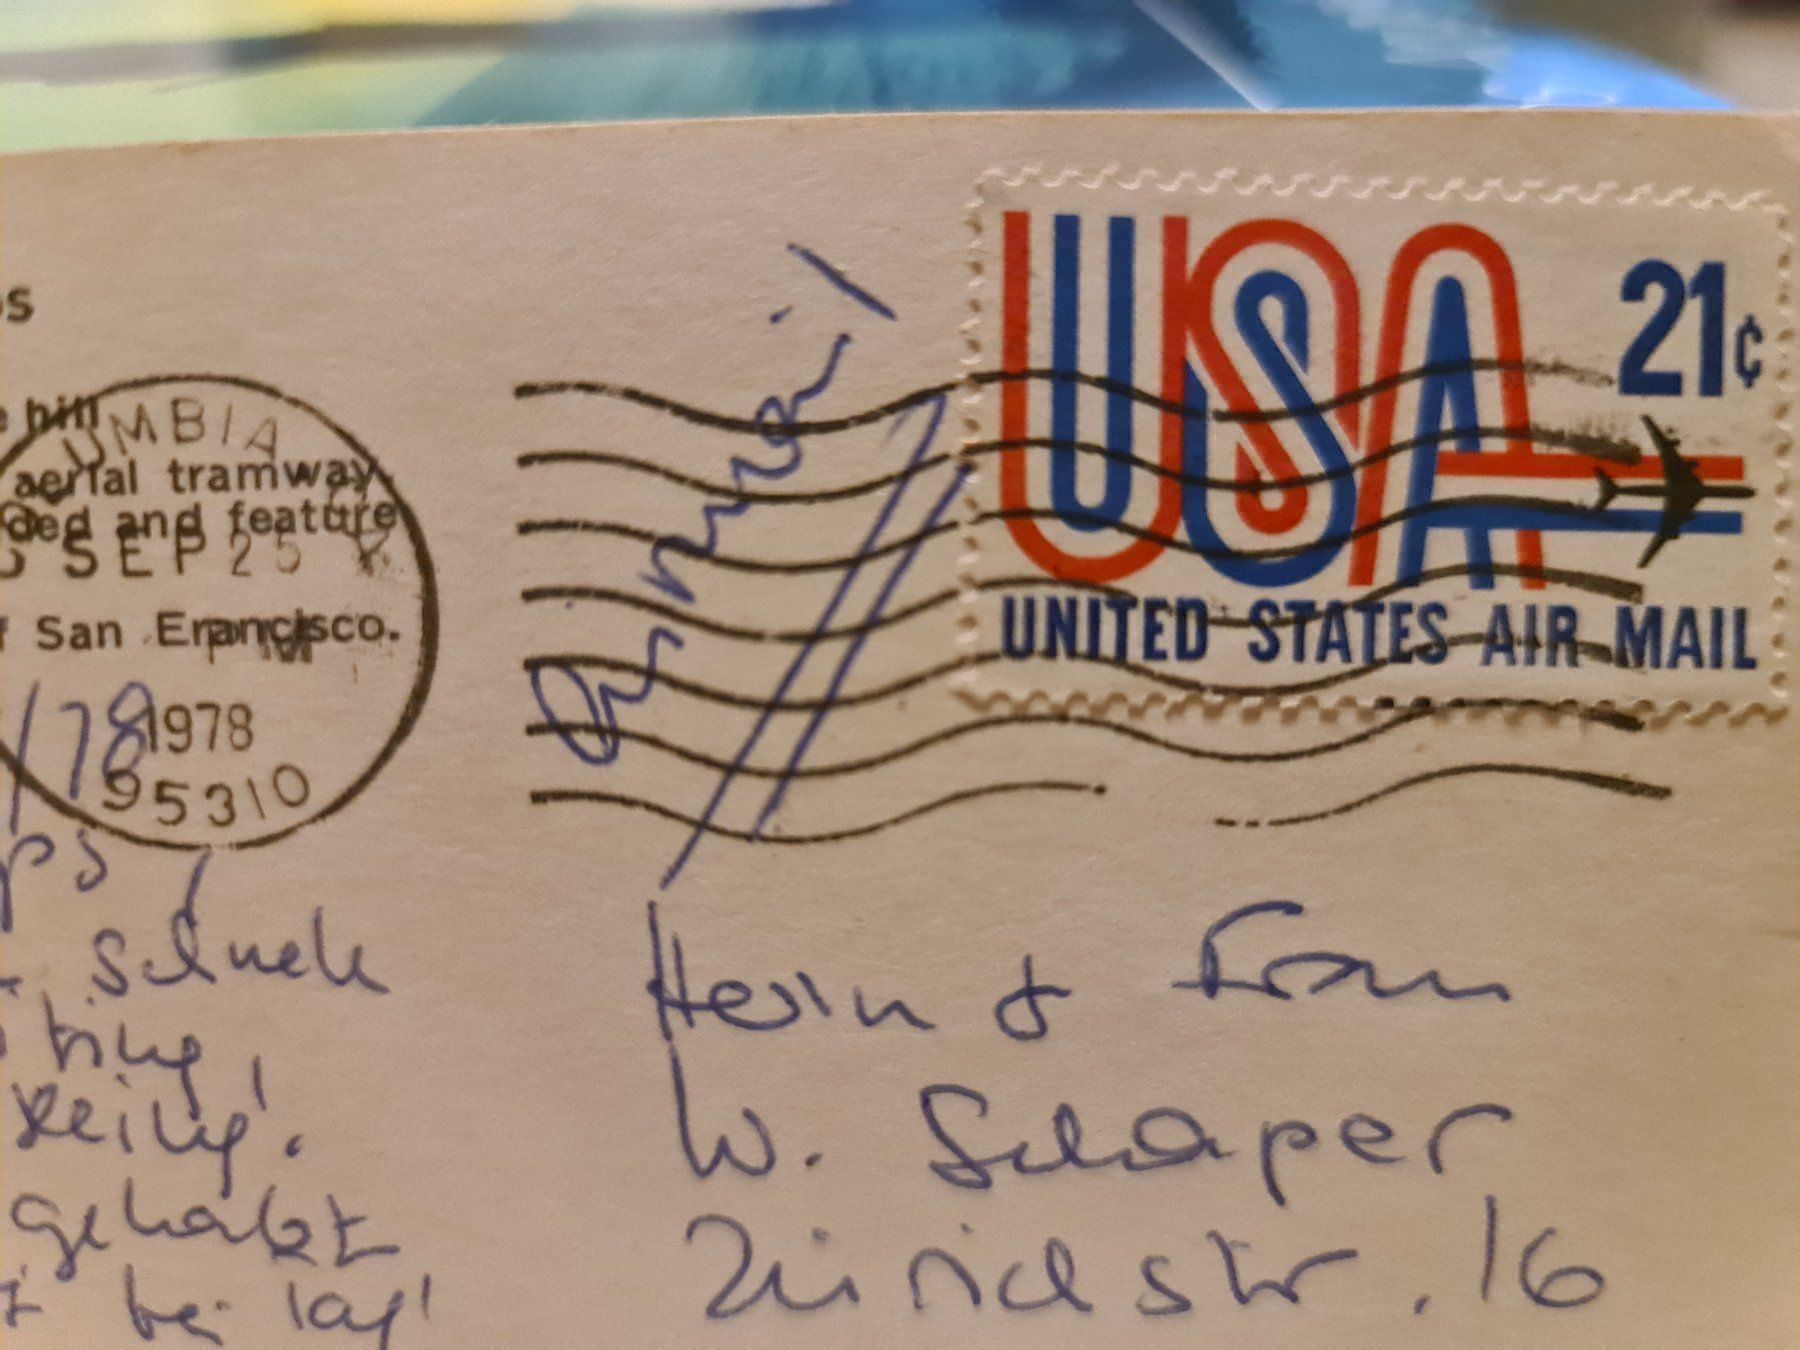 USA 21¢
UNITED STATES AIR MAIL
Air mail
UMBIA
SEP 25
PM
1978
95310
os
hill
aerial tramway
ded and feature
San Francisco.
/78
ps,
schnell
gehabt
bei
Herrn & Frau
W. Schaper
Zürichstr. 16